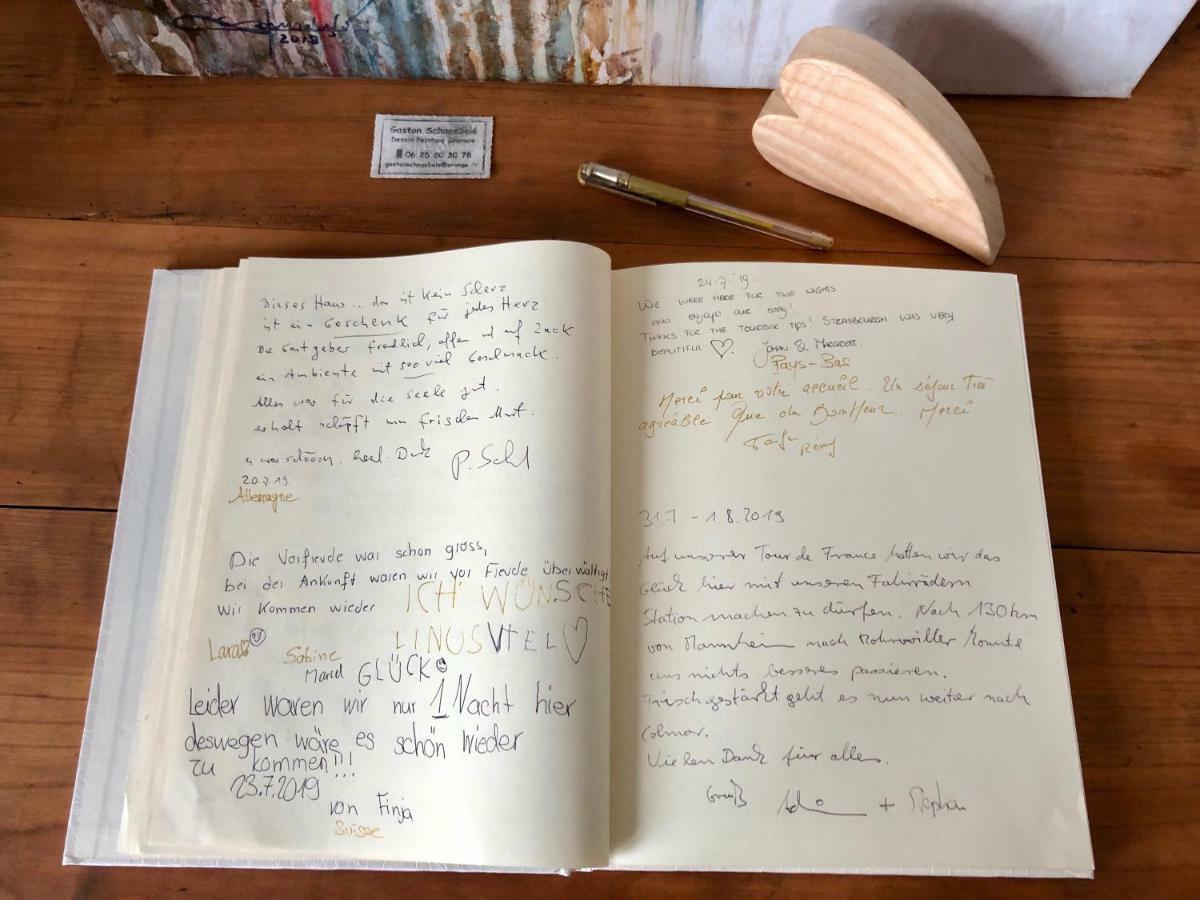 2018
Gaston Schnœbelé
Dessin Peinture Gravure
06 25 60 30 78
Dieses Haus... das ist kein Scherz
ist ein Geschenk für jedes Herz
Die Gastgeber friedlich, offen und auf Zack
ein Ambiente mit sooo viel Geschmack.
Alles war für die Seele gut.
erholt schöpft man frischen Mut.
es war schööön. herzl. Dank
20.7.19
Allemagne
Die Vorfreude war schon gross,
bei der Ankunft waren wir vor Freude überwältigt.
Wir kommen wieder
ICH WÜNSCHE
LINUS VIEL ♡
Lara
Sabine
Marcel
GLÜCK
Leider waren wir nur 1 Nacht hier
deswegen wäre es schön wieder
zu kommen!!!
23.7.2019
von Finja
Suisse
24-7-'19.
WE WERE HERE FOR TWO NIGHTS
AND ENJOYD OUR STAY!
THANKS FOR THE TOURISTIK TIPS! STRASBOURG WAS VERY
BEAUTIFUL ♡.
JOHAN &
Pays-Bas
Merci pour votre accueil. Un séjour très
agréable. Que du Bonheur. Merci
Rémy
31.7. - 1.8.2019
Auf unserer Tour de France hatten wir das
Glück hier mit unseren Fahrrädern
Station machen zu dürfen. Nach 130 km
von Mannheim nach Rohrwiller konnte
uns nichts besseres passieren.
Frisch gestärkt geht es nun weiter nach
Colmar.
Vielen Dank für alles.
Gruß
+ Stephan